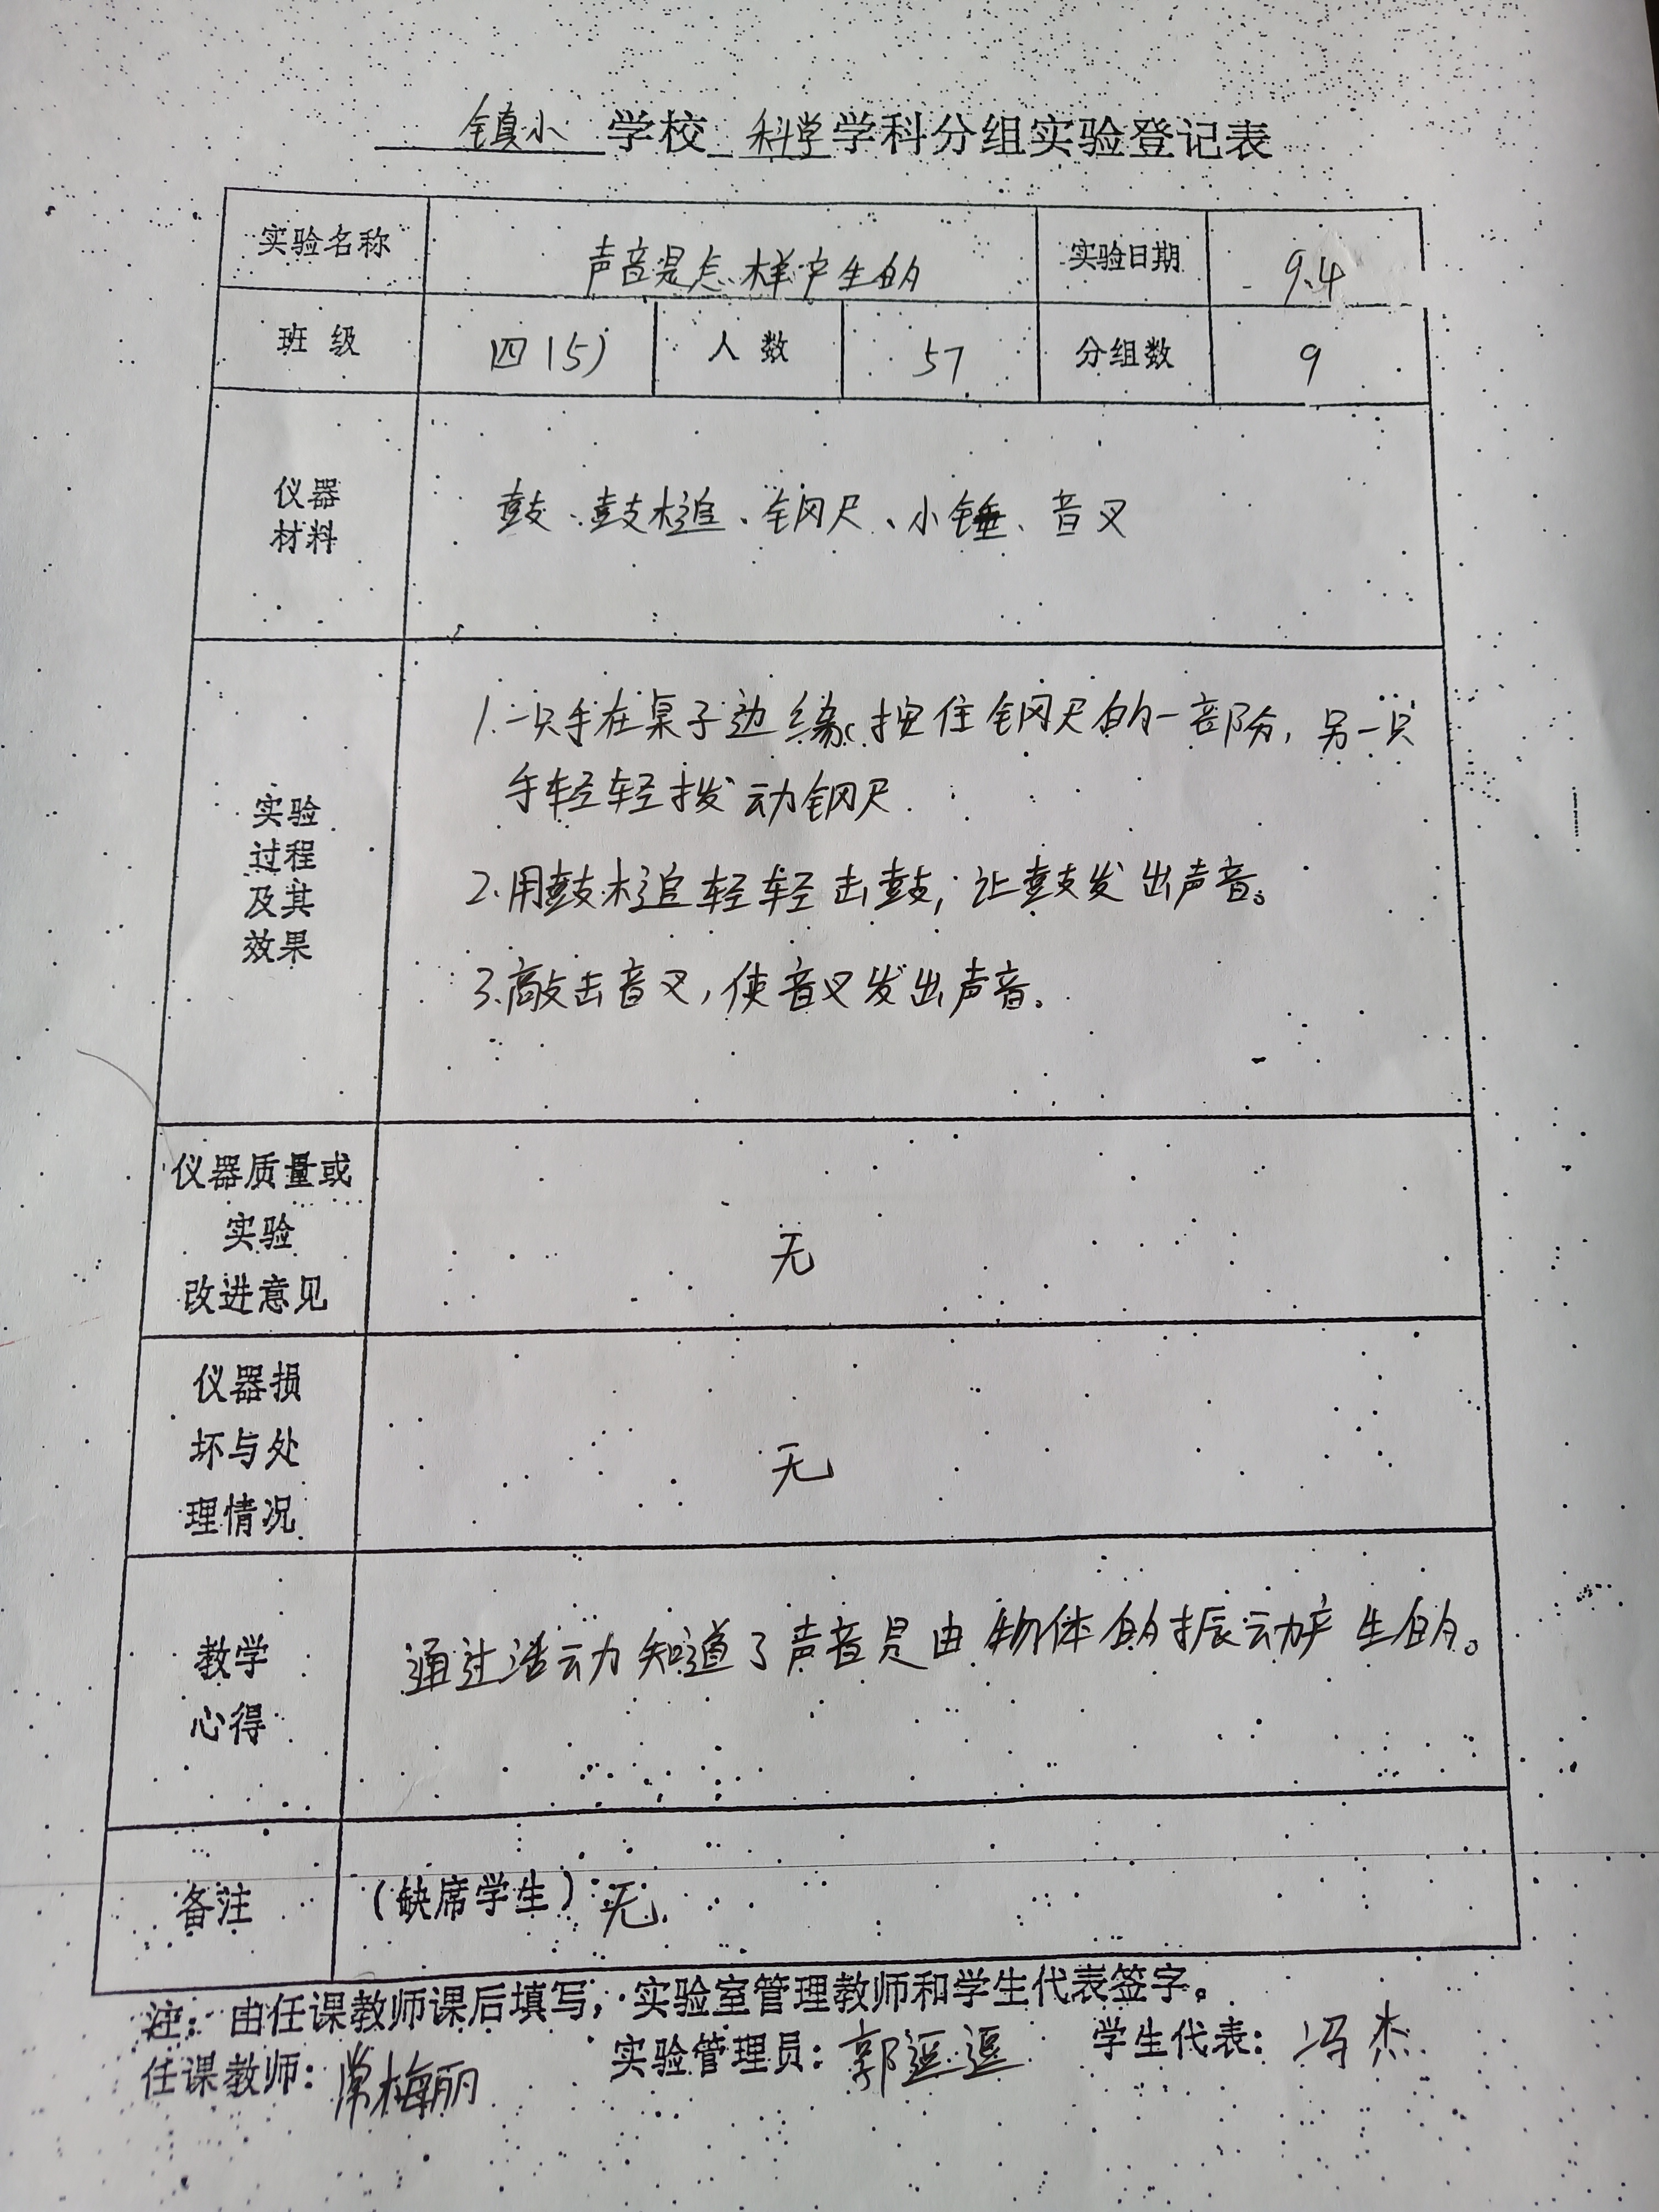 镇小 学校 科学 学科分组实验登记表
实验名称 声音是怎样产生的 实验日期 9.4
班级 四(5) 人数 57 分组数 9
仪器
材料
鼓、鼓槌、钢尺、小锤、音叉
实验
过程
及其
效果
1.一只手在桌子边缘按住钢尺的一部分,另一只
手轻轻拨动钢尺.
2.用鼓槌轻轻击鼓,让鼓发出声音。
3.敲击音叉,使音叉发出声音。
仪器质量或
实验
改进意见
无
仪器损
坏与处
理情况
无
教学
心得
通过活动知道了声音是由物体的振动产生的。
备注 (缺席学生) 无.
注:由任课教师课后填写,实验室管理教师和学生代表签字。
任课教师:常梅丽 实验管理员:郭逗逗 学生代表:冯杰